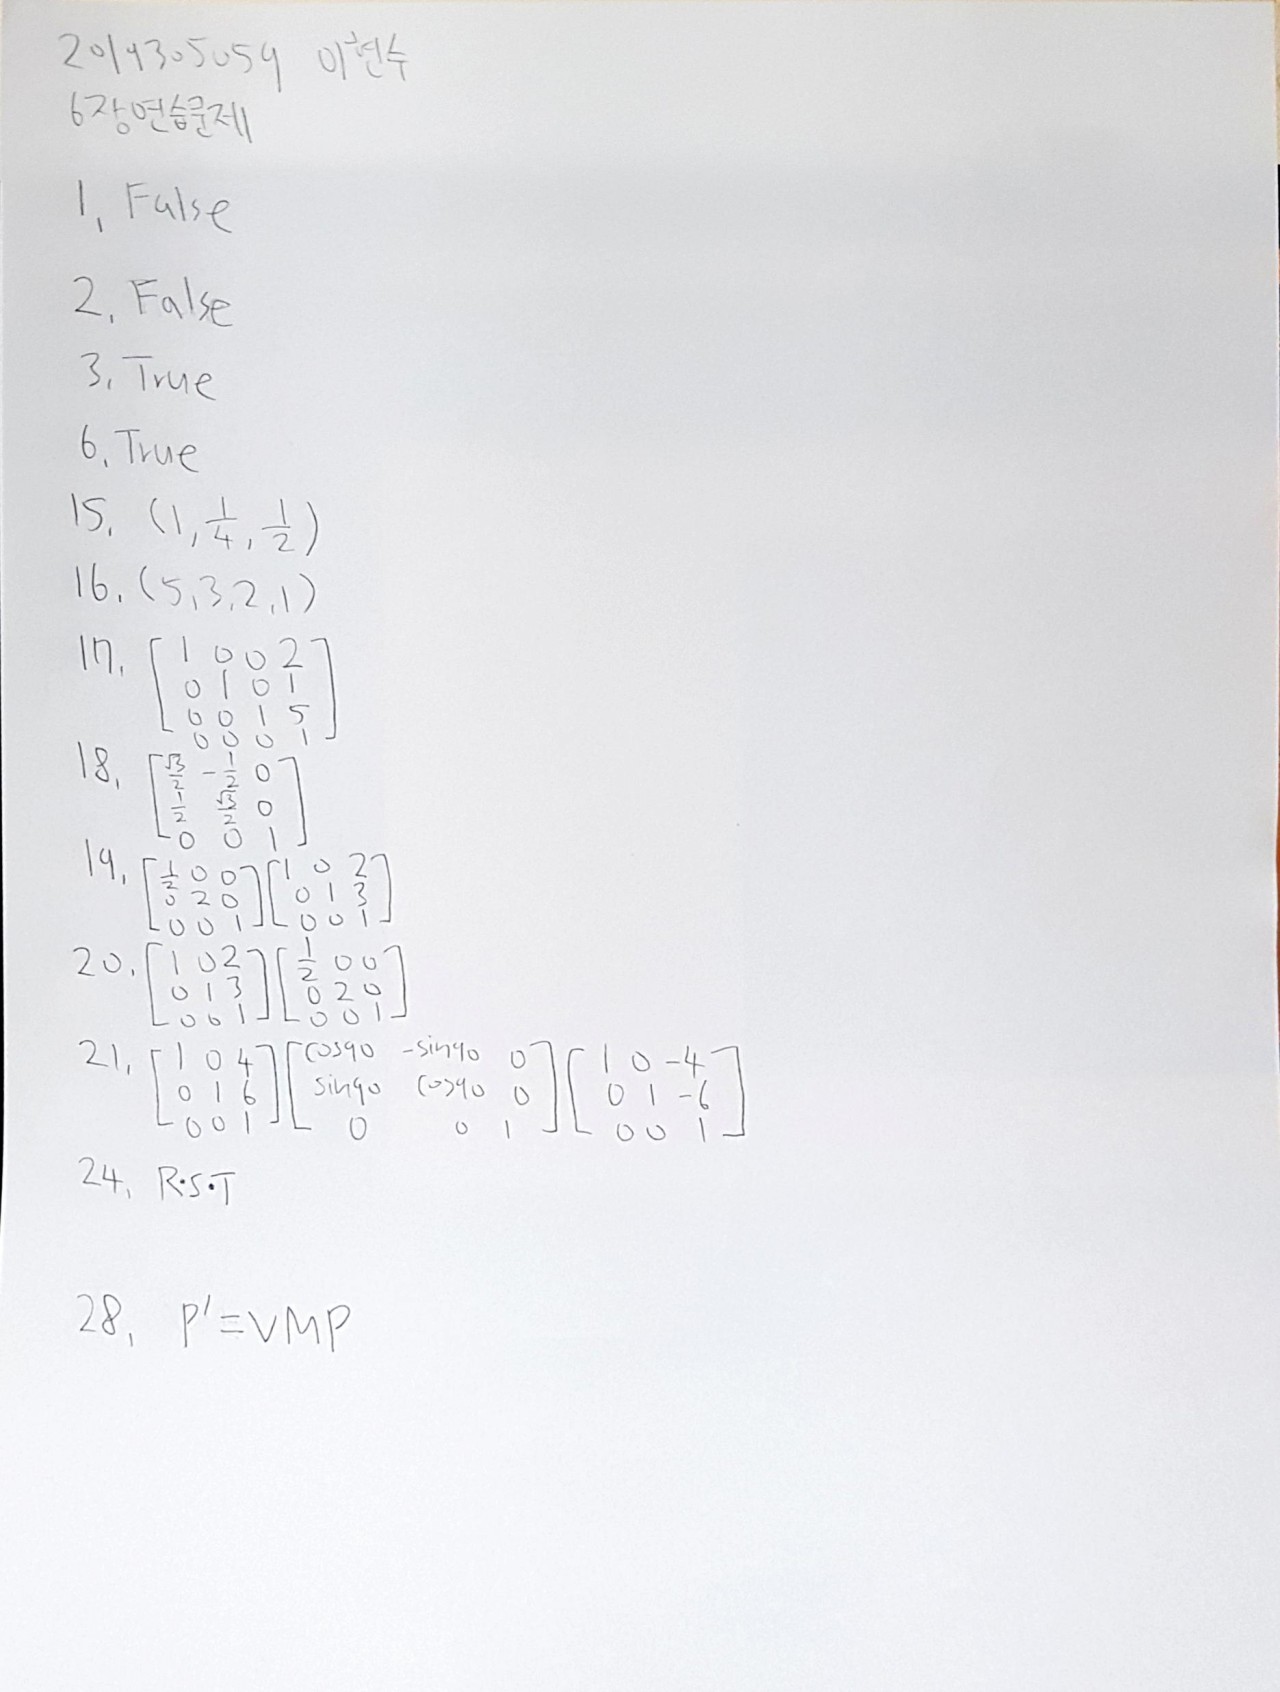 2019305059 이현수
6장연습문제
1, False
2, False
3, True
6, True
15, (1, 1/4, 1/2)
16, (5,3,2,1)
17, [1 0 0 2
0 1 0 1
0 0 1 5
0 0 0 1]
18, [√3/2 -1/2 0
1/2 √3/2 0
0 0 1]
19, [1/2 0 0] [1 0 2]
[0 2 0] [0 1 3]
[0 0 1] [0 0 1]
20, [1 0 2] [1/2 0 0]
[0 1 3] [0 2 0]
[0 0 1] [0 0 1]
21, [1 0 4] [cos90 -sin90 0] [1 0 -4]
[0 1 6] [sin90 cos90 0] [0 1 -6]
[0 0 1] [0 0 1] [0 0 1]
24, R·S·T
28, P'=VMP